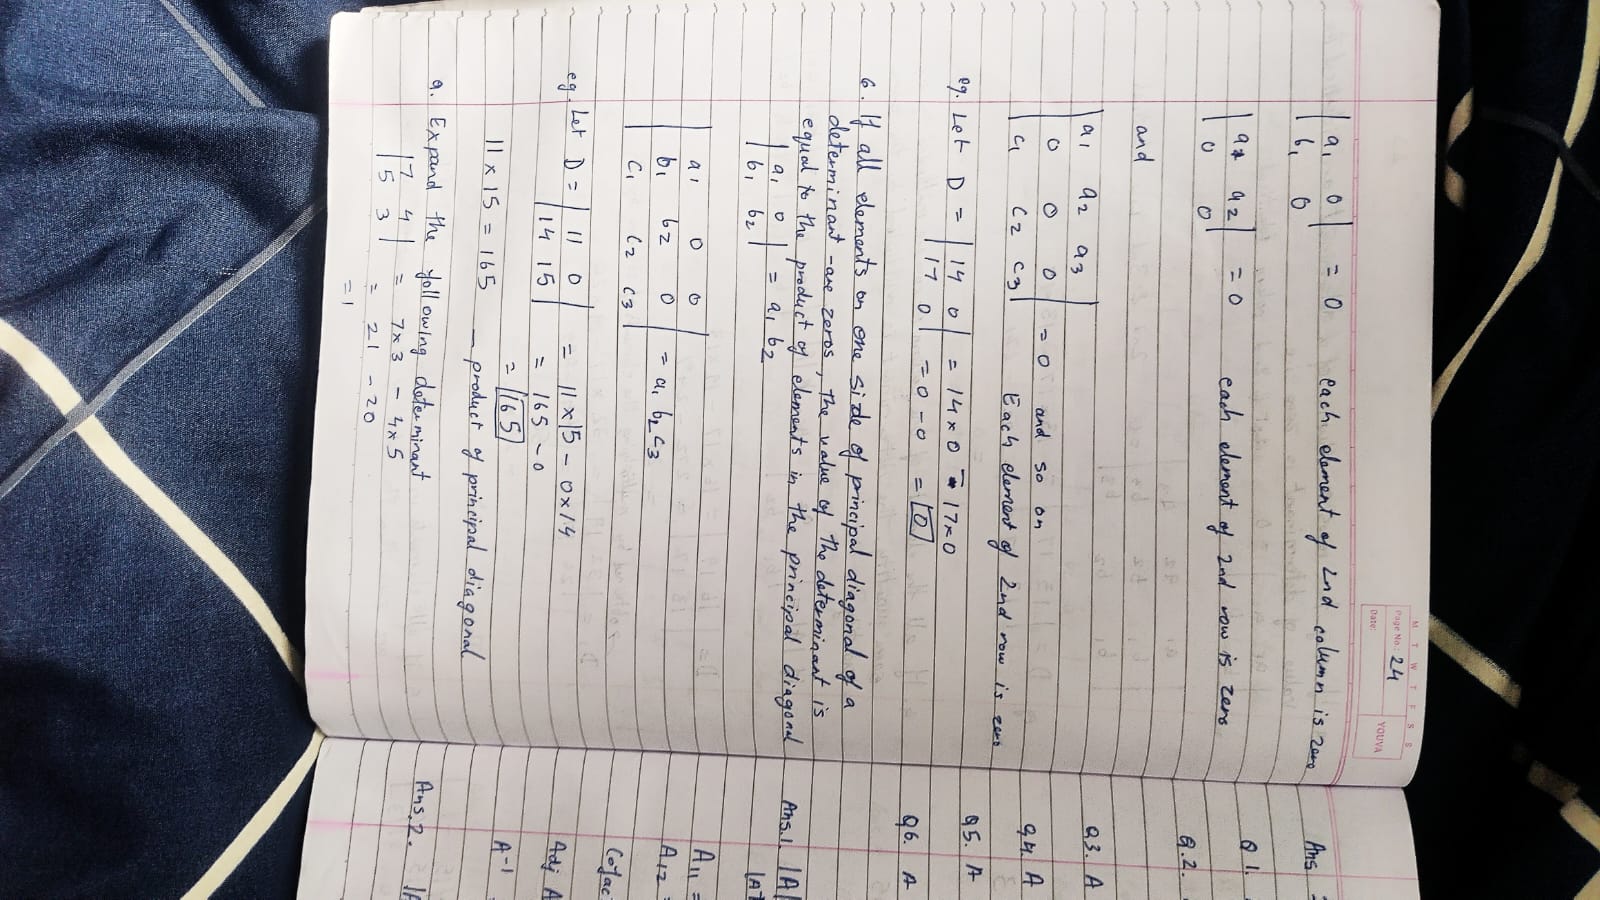 M T W T F S S
Page No.: 24
YOUVA
Date:
| a₁ 0 | = 0 each element of 2nd column is zero
| b₁ 0 |
| a₂ | = 0 each element of 2nd row is zero
| 0 0 |
and
| a₁ a₂ a₃ |
| 0 0 0 | = 0 and so on
| c₁ c₂ c₃ | Each element of 2nd row is zero
eg. Let D = | 14 0 | = 14 × 0 - 17×0
| 17 0 | = 0 - 0 = 0
6. If all elements on one side of principal diagonal of a
determinant are zeros, the value of the determinant is
equal to the product of elements in the principal diagonal
| a₁ 0 | = a₁ b₂
| b₁ b₂ |
| a₁ 0 0 |
| b₁ b₂ 0 | = a₁ b₂ c₃
| c₁ c₂ c₃ |
eg. Let D = | 11 0 | = 11 × 15 - 0 × 14
| 14 15 | = 165 - 0
= 165
11 × 15 = 165 — product of principal diagonal
Expand the following determinant
| 7 4 | = 7×3 - 4×5
| 5 3 | = 21 - 20
= 1
Ans
Q 1.
Q.2.
Q3. A
Q4. A
Q5. A
Q6. A
Ans.1. |A|
A₁₁ =
A₁₂ =
Cofac
Adj A
A⁻¹
Ans.2.